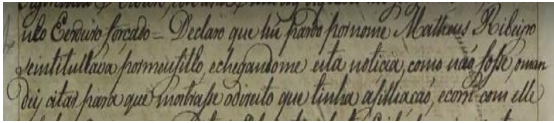 nho Erdeiro forçado = Declaro que hú pardo por nome Matheus Ribeiro
se intitullava por meu filho, e chegandome esta noticia, como não fosse, o man
dey citar para que mostrasse o direito que tinha a filhacaõ, e corri com elle